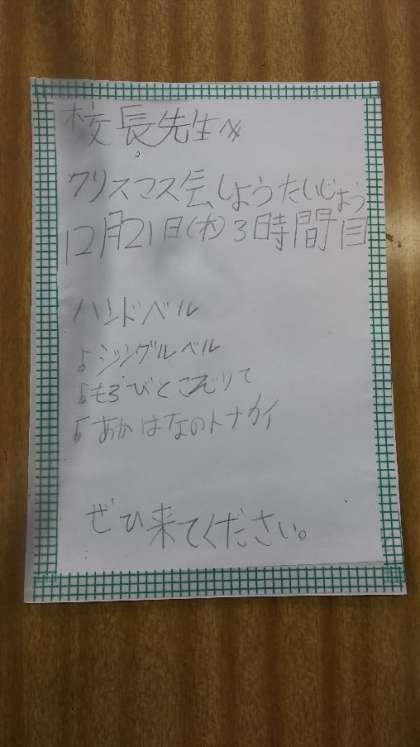 校長先生へ
クリスマス会しょうたいじょう
12月21日(水)3時間目
ハンドベル
♪ジングルベル
♪もろびとこぞりて
♪あかはなのトナカイ
ぜひ来てください。